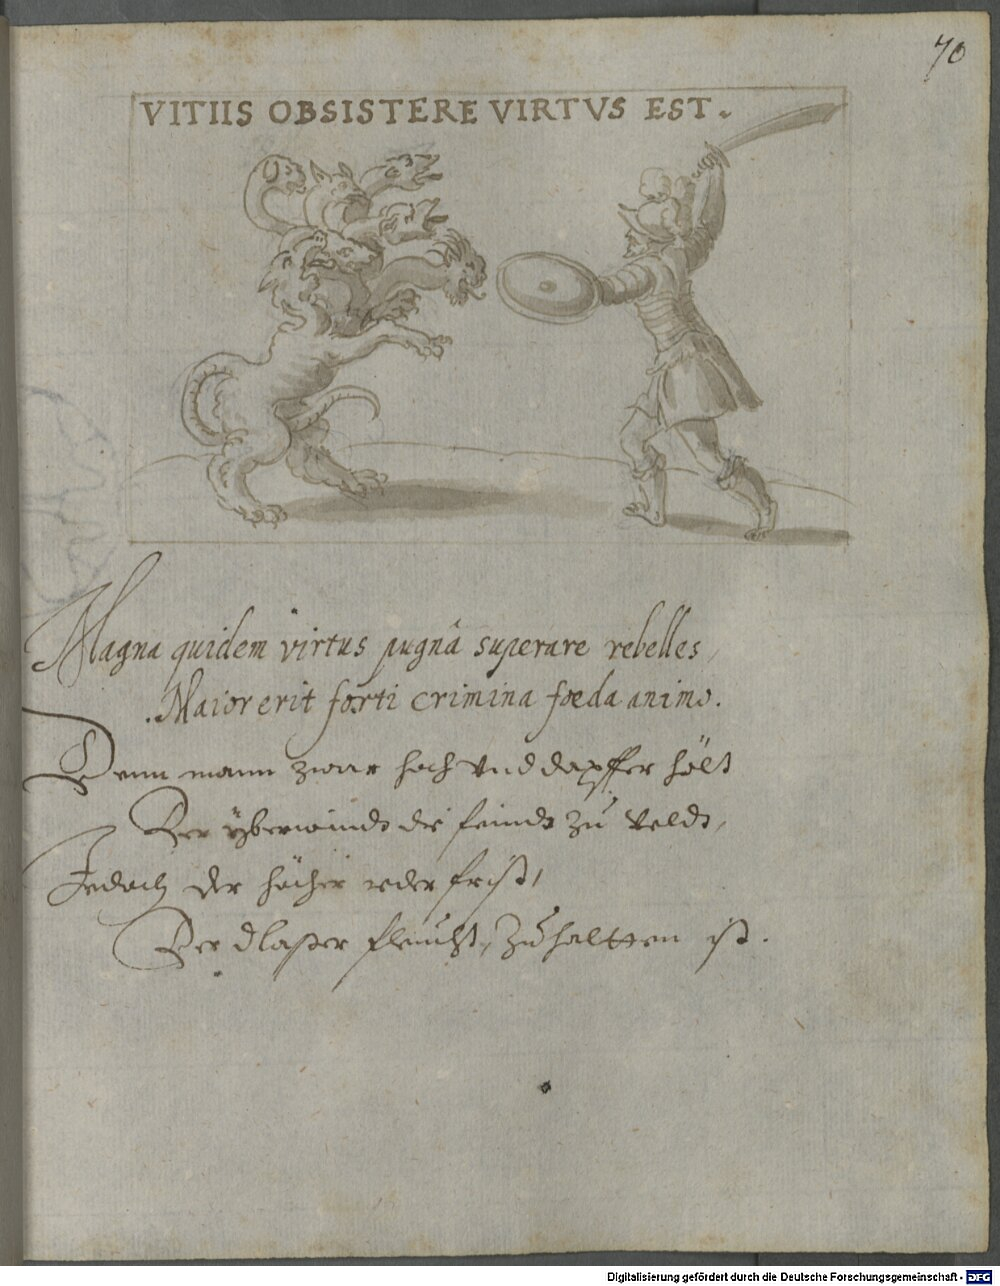 70
VITIIS OBSISTERE VIRTVS EST.
Magna quidem virtus pugnâ superare rebelles,
Maior erit forti crimina foeda animo.
Denn mann zwar hoch vnd dapffer hölt
Der yberwindt die feindt zu veldt,
Jedoch der höcher ieder frist,
Der dlaster fleucht, Zuhaltten ist.
Digitalisierung gefördert durch die Deutsche Forschungsgemeinschaft - DFG